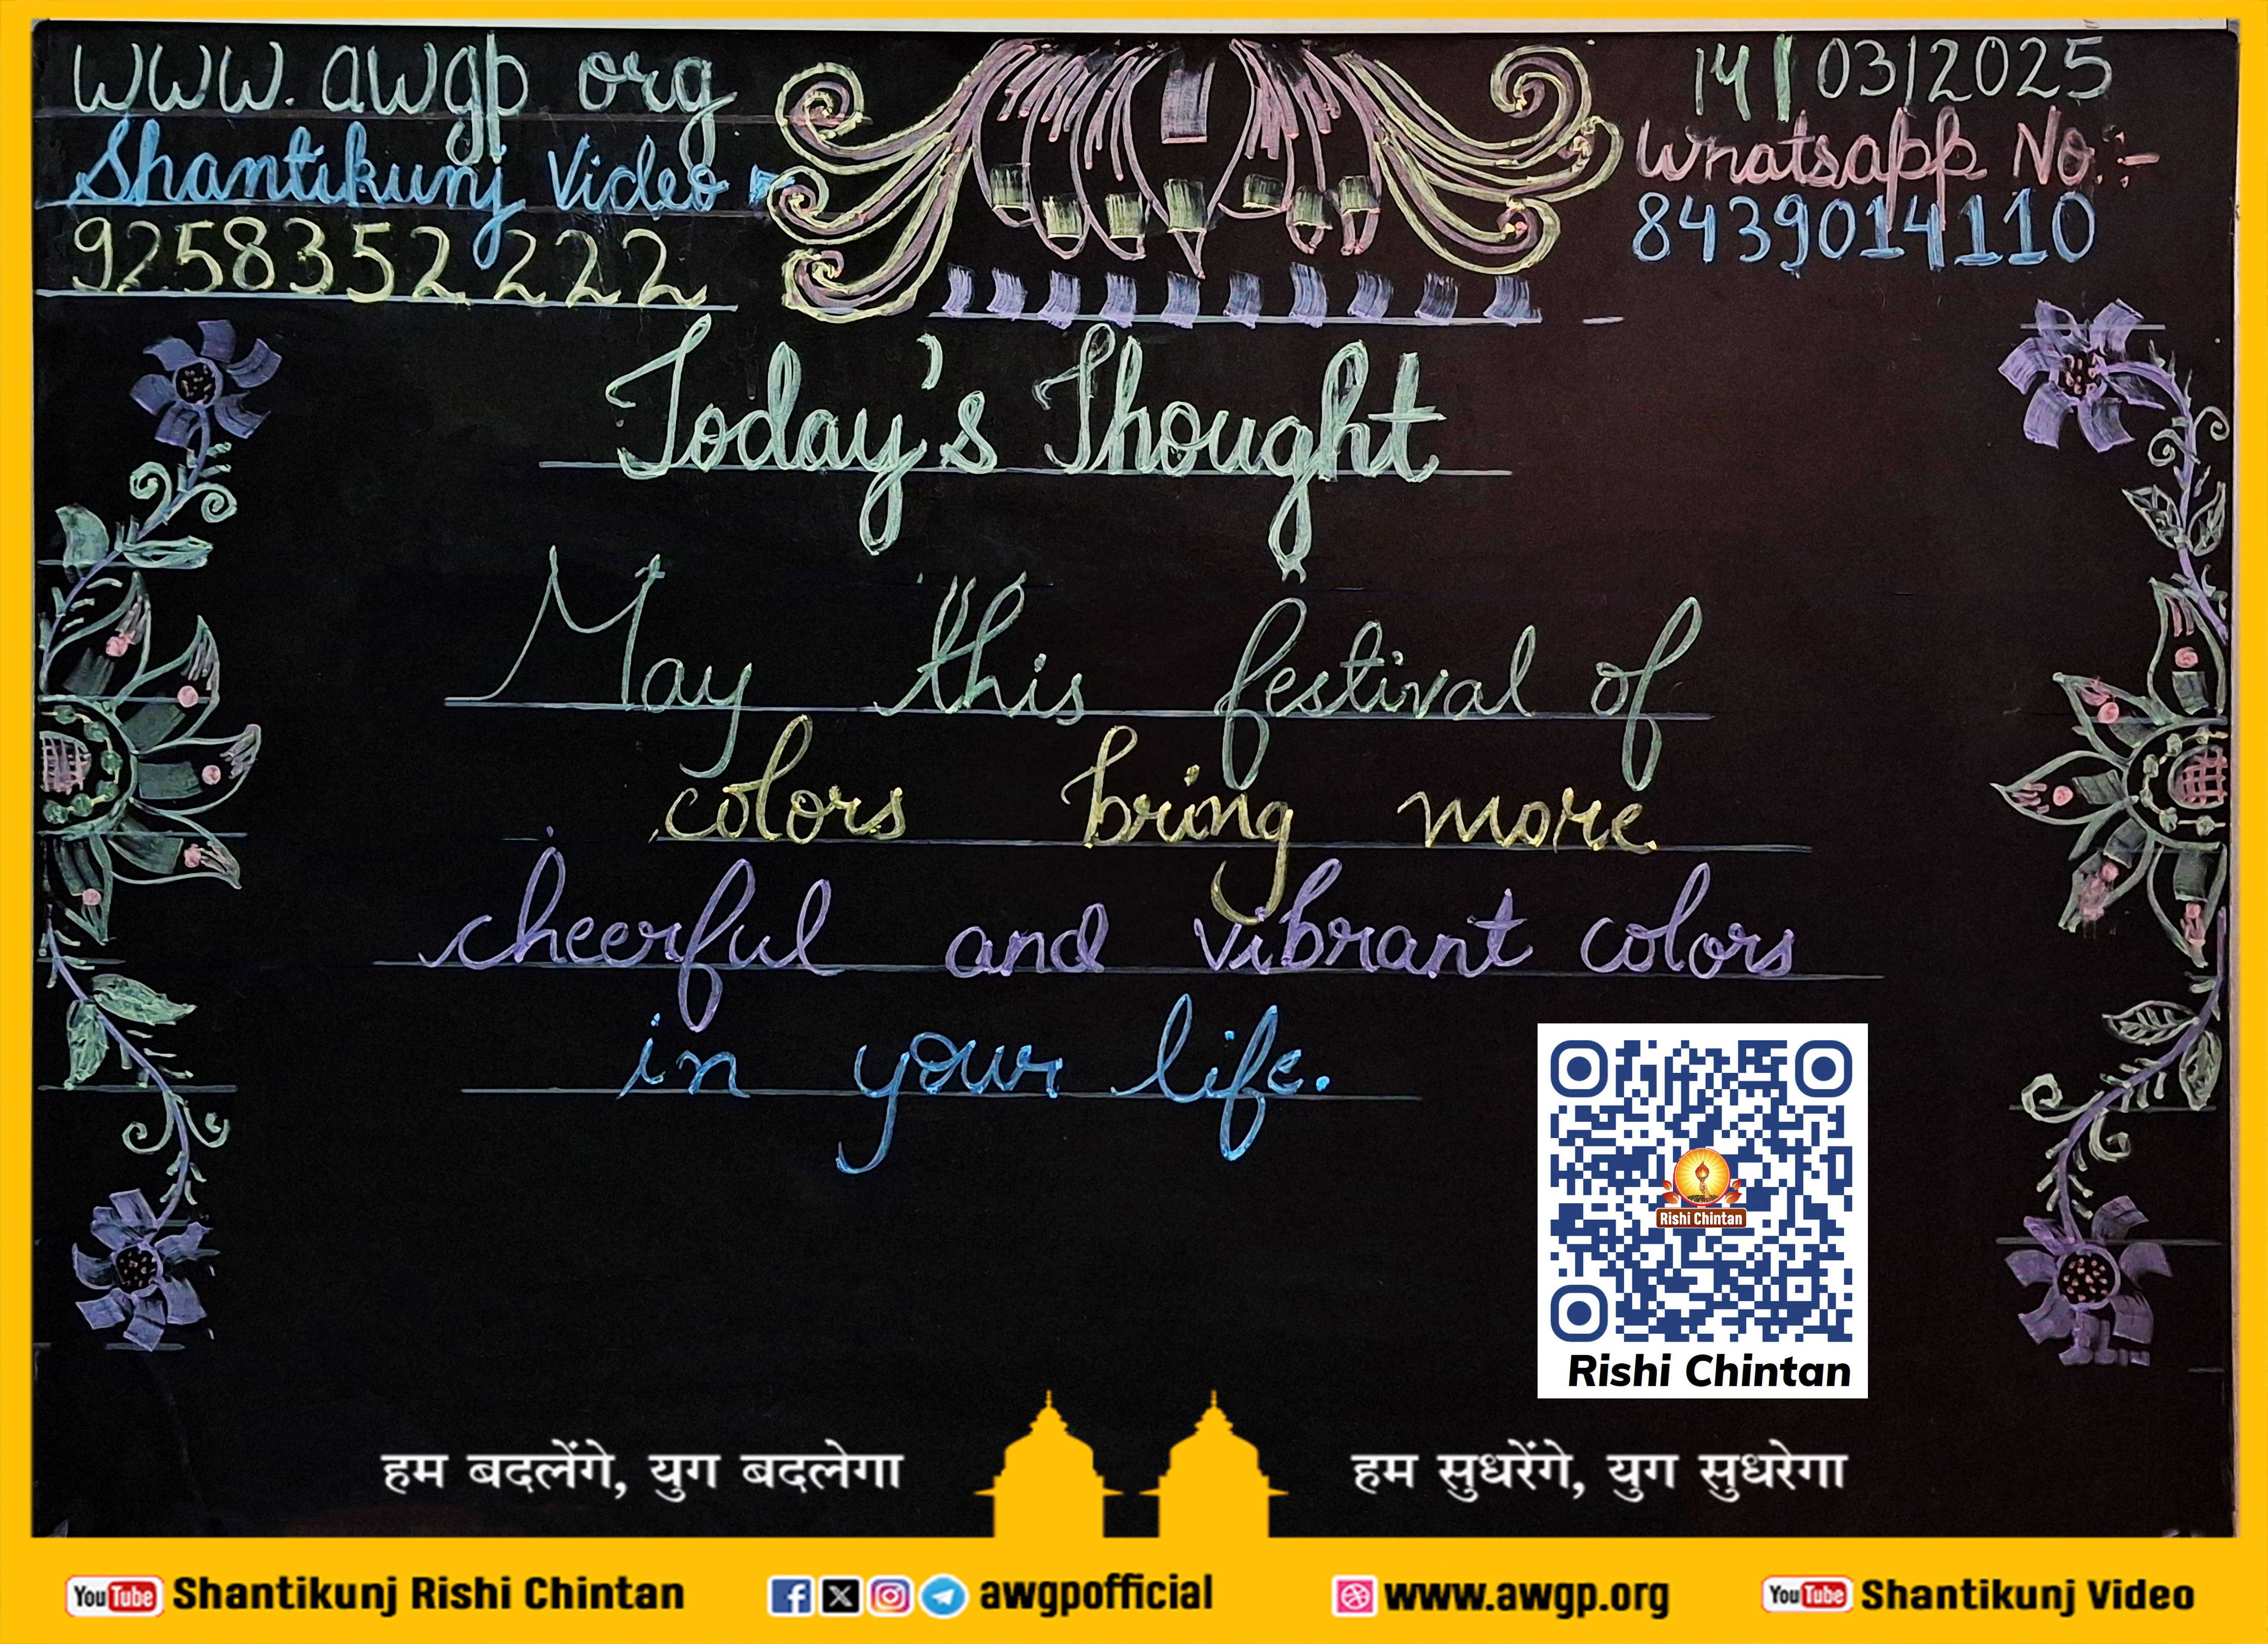 www.awgp org
Shantikunj Video
9258352222
14/03/2025
Whatsapp No.:-
8439014110
Today's Thought
May this festival of
colors bring more
cheerful and vibrant colors
in your life.
Rishi Chintan
Rishi Chintan
हम बदलेंगे, युग बदलेगा
हम सुधरेंगे, युग सुधरेगा
YouTube Shantikunj Rishi Chintan
awgpofficial
www.awgp.org
YouTube Shantikunj Video